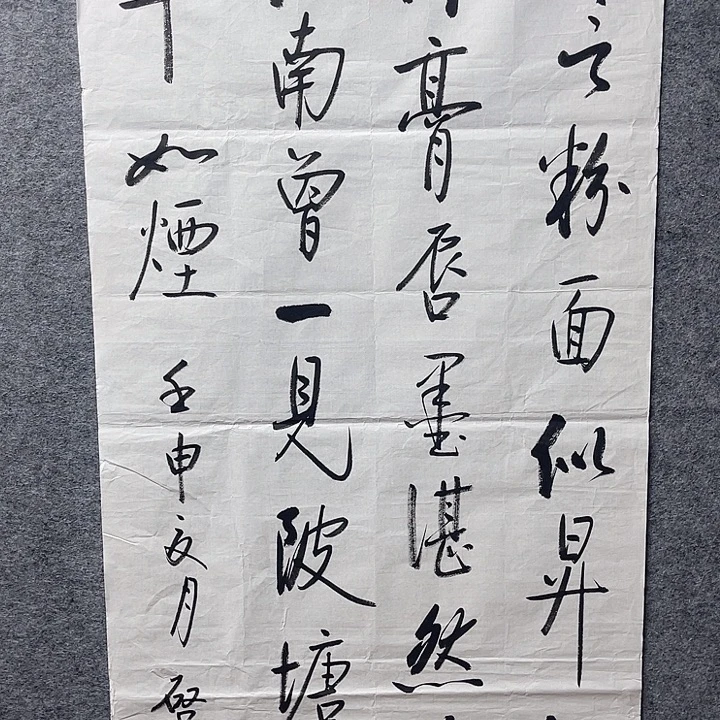 言粉面似昇
膏唇墨湛然
南曾一見陂塘
如煙
壬申夏月啓